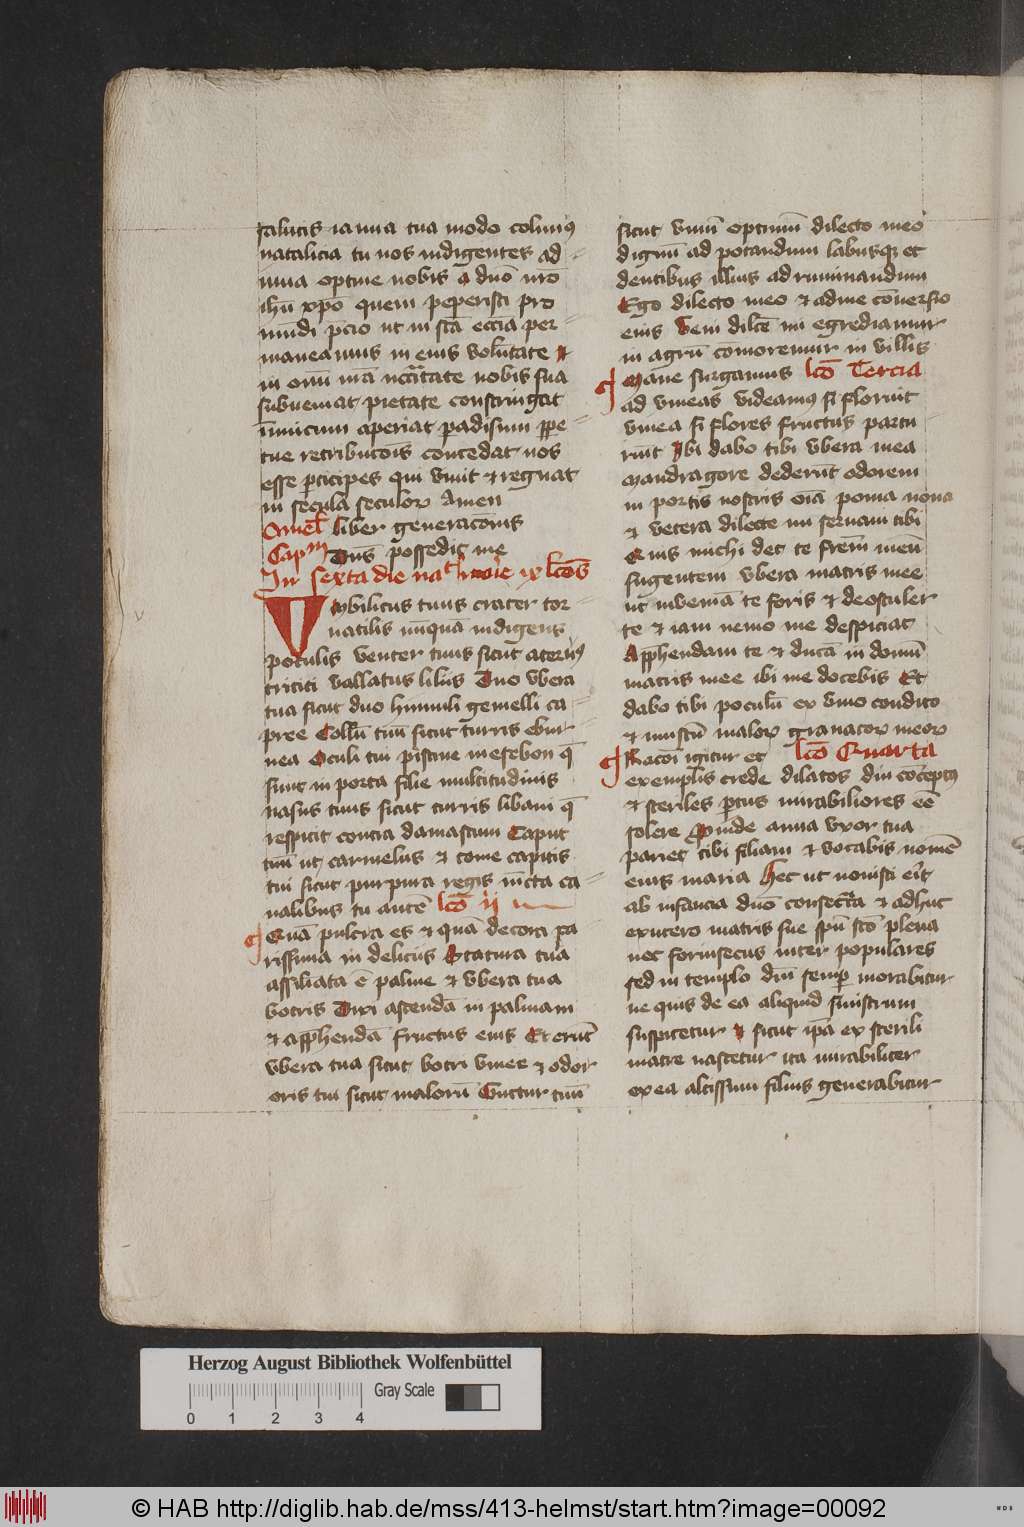 salutis ianua tua modo colimꝯ
natalicia tu nos indigentes ad
iuua optine nobis a̅ dn̅o nr̅o
ih̅u xp̅o quem peperisti pro
mu̅di p̅cio ut in sc̅a ecc̅ia per
maneamus in eius volu̅tate
in om̅i nocitate nobis sua
subueniat pietate constringat
i̅imicum aperiat padisum ppe
tue retribuco̅is concedat nos
esse pticipes qui viuit et regnat
in secula seculoꝝ Amen
Omel̅ liber generaconis
Capᵐ Dn̅s possedit me
In sexta die natⁱ marie ix lc̅o̅s
Vmbilicus tuus crater tor
natilis nu̅qua̅ indigens
poculis venter tuus sicut aceruꝯ
tritici vallatus liliis Duo vbera
tua sicut duo hinnuli gemelli ca
pree Collu̅ tuu̅ sicut turris ebur
nea Oculi tui piscine in esebon q̅
sunt in porta filie multitudinis
nasus tuus sicut turris libani q̅
respicit contra damascum Caput
tuu̅ ut carmelus et come capitis
tui sicut purpura regis iu̅cta ca
nalibus tu aute̅ lc̅o ii
Qua̅ pulcra es et qua̅ decora ca
rissima in deliciis Statura tua
assiliata e̅ palme et vbera tua
botris Dixi ascenda̅ in palmam
et app̅henda̅ fructus eius Et eru̅t
vbera tua sicut botri vinee et odor
oris tui sicut maloru̅ Guttur tuu̅
sicut vinu̅ optimu̅ dilecto meo
dignu̅ ad potandum labiisqꝫ et
dentibus illius ad ruminandum
Ego dilecto meo et ad me co̅uersio
eius Veni dilc̅e mi egrediamur
in agru̅ co̅moremur in villis
Mane surgamus lc̅o Tercia
ad vineas videamꝯ si floruit
vinea si flores fructus partu
riu̅t Ibi dabo tibi vbera mea
Mandragore dederu̅t odorem
in portis nostris o̅ia poma noua
et vetera dilecte mi seruaui tibi
Quis michi det te fr̅em meu̅
sugentem vbera matris mee
ut inuenia̅ te foris et deosculer
te et iam nemo me despiciat
Apphendam te et duca̅ in domu̅
matris mee ibi me docebis Et
dabo tibi poculu̅ ex vino condito
et mustu̅ maloꝝ granatoꝝ meoꝝ
Racoi̅ igitur et lc̅o Quarta
exemplis crede dilatos diu co̅ceptꝯ
et steriles ptus mirabiliores e̅e̅
solere Proinde anna vxor tua
pariet tibi filiam et vocabis nome̅
eius maria Hec ut nouisti eri̅t
ab infancia dn̅o consecrata et adhuc
ex utero matris sue sp̅u sc̅o plena
nec forinsecus inter populares
sed in templo dn̅i semp morabitur
ne quis de ea aliquid sinistrum
suspicetur et sicut ip̅a ex sterili
matre nascetur ita mirabiliter
ex ea altissimi filius generabitur
Herzog August Bibliothek Wolfenbüttel
Gray Scale
0 1 2 3 4
© HAB http://diglib.hab.de/mss/413-helmst/start.htm?image=00092